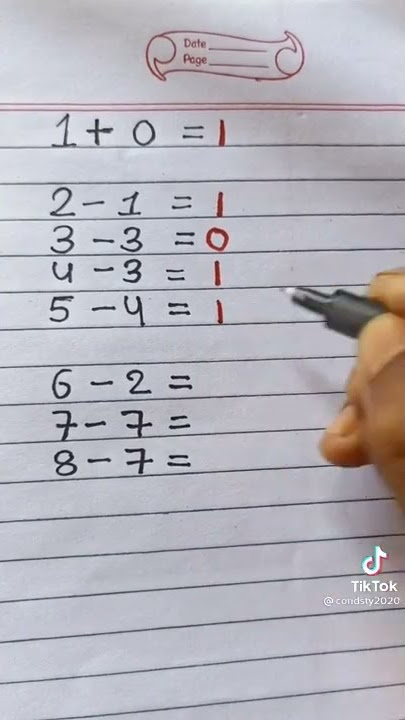 Date
Page
1 + 0 = 1
2 - 1 = 1
3 - 3 = 0
4 - 3 = 1
5 - 4 = 1
6 - 2 =
7 - 7 =
8 - 7 =
TikTok
@cendsty2020